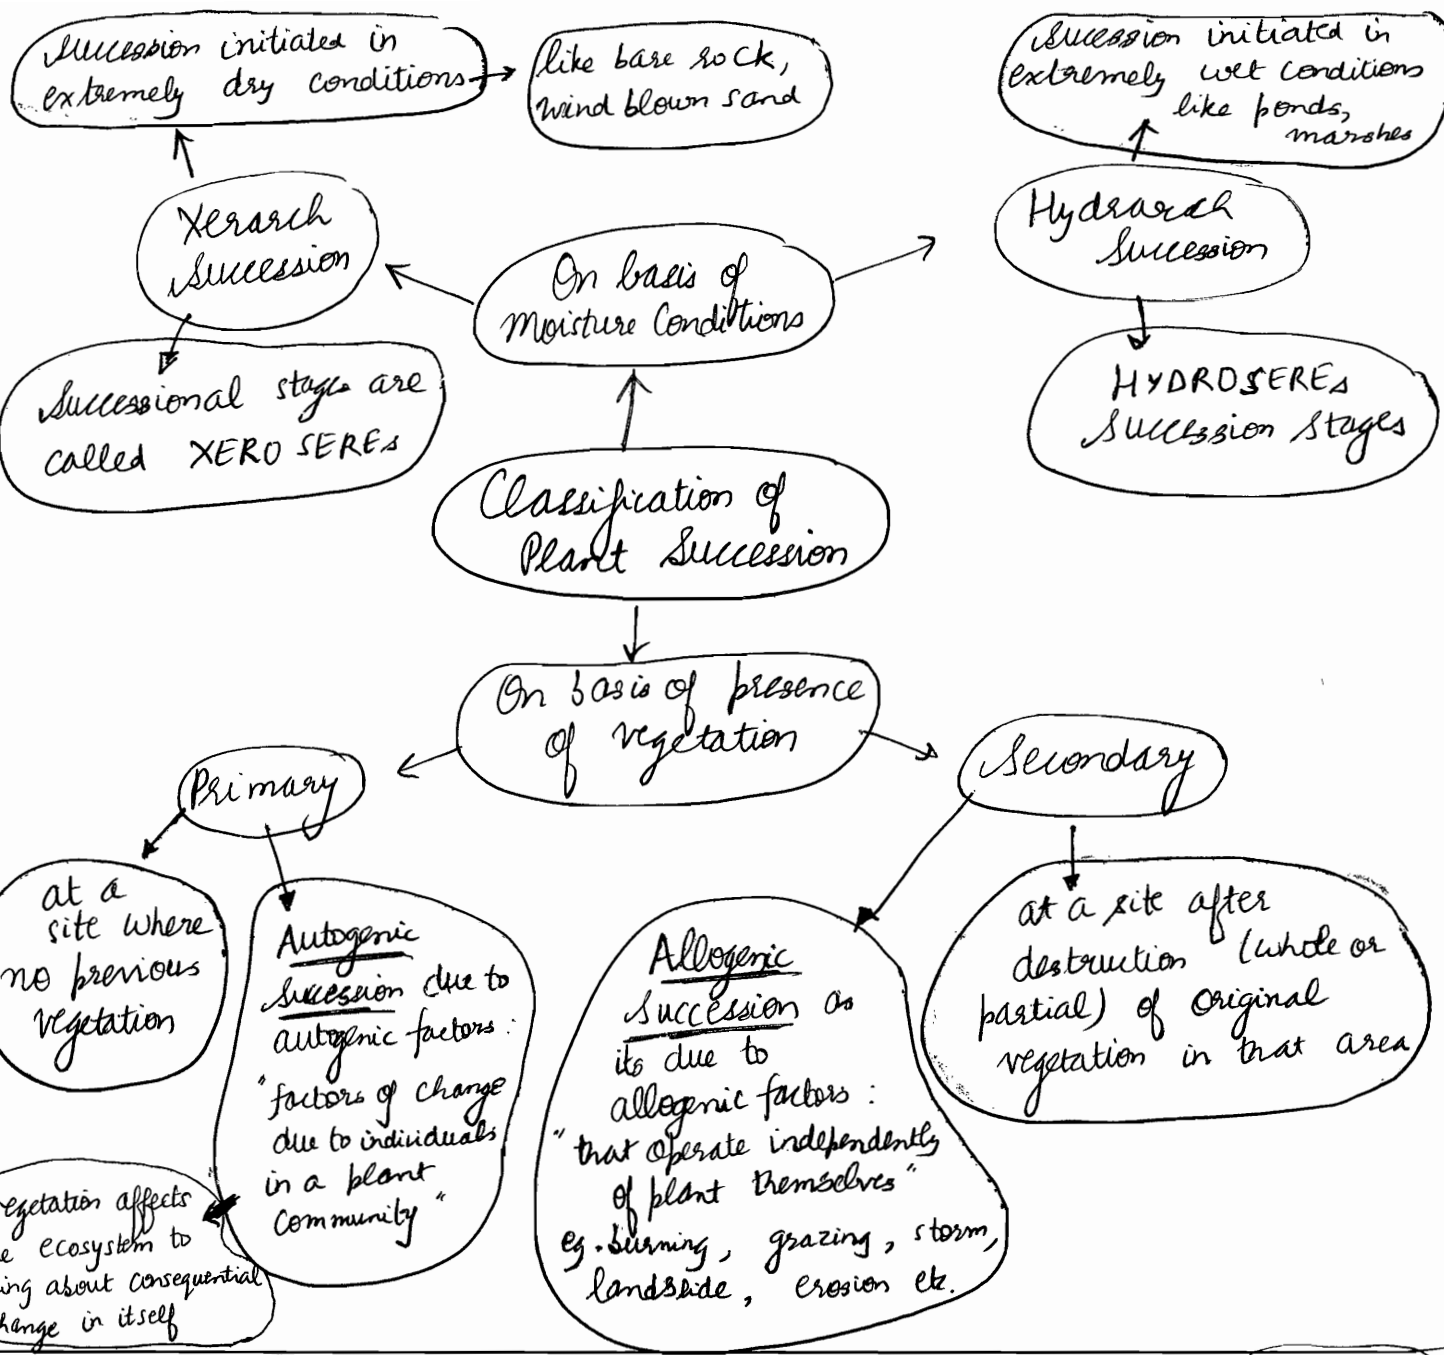 Succession initiated in
extremely dry conditions
like bare rock,
wind blown sand
Sucession initiated in
extremely wet conditions
like ponds,
marshes
Xerarch
Succession
On basis of
Moisture Conditions
Hydrarch
Succession
Successional stages are
called XERO SEREs
HYDROSEREs
Succession Stages
Classification of
Plant Succession
On basis of presence
of vegetation
Primary
Secondary
at a
site where
no previous
vegetation
Autogenic
Succession due to
autogenic factors:
"factors of change
due to individuals
in a plant
community"
Allogenic
Succession as
its due to
allogenic factors:
"that operate independently
of plant themselves"
eg. burning, grazing, storm,
landslide, erosion etc.
at a site after
destruction (whole or
partial) of original
vegetation in that area
egetation affects
e ecosystem to
ing about consequential
hange in itself